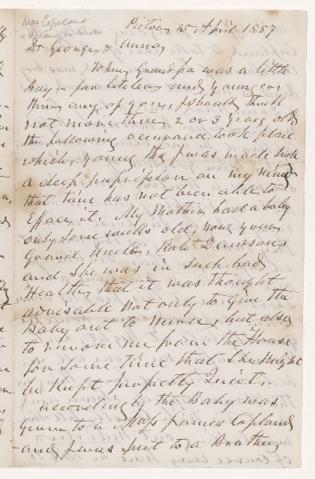 Mrs Copeland
Pictou 15 April 1857
Dr George & Anna
When Grandpa was a little
Boy a fair little less and younger
than any of you, I should think
not more than 2 or 3 years old
the following occurance took place
which, young tho I was made such
a deep impression on my mind
that time has not been able to
efface it. My Mother had a baby
only some months old, now your
Uncle, Robt Dawson
and She was in such bad
Health, that it was thought
adviseable not only to give the
Baby out to Nurse, but also
to remove me from the House
for some time that She might
be Kept perfectly Quiet.
according to the Baby was
given to a Mrs Copland
and I was put to a Boarding